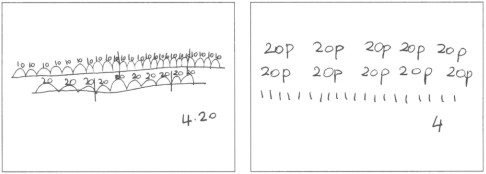 10 10 10 10 10 10 10 10 10 10 10 10 10 10 10 10 10 10 10 10 10
20 20 20 20 20 20 20 20 20 20
4.20
20p 20p 20p 20p 20p
20p 20p 20p 20p 20p
4